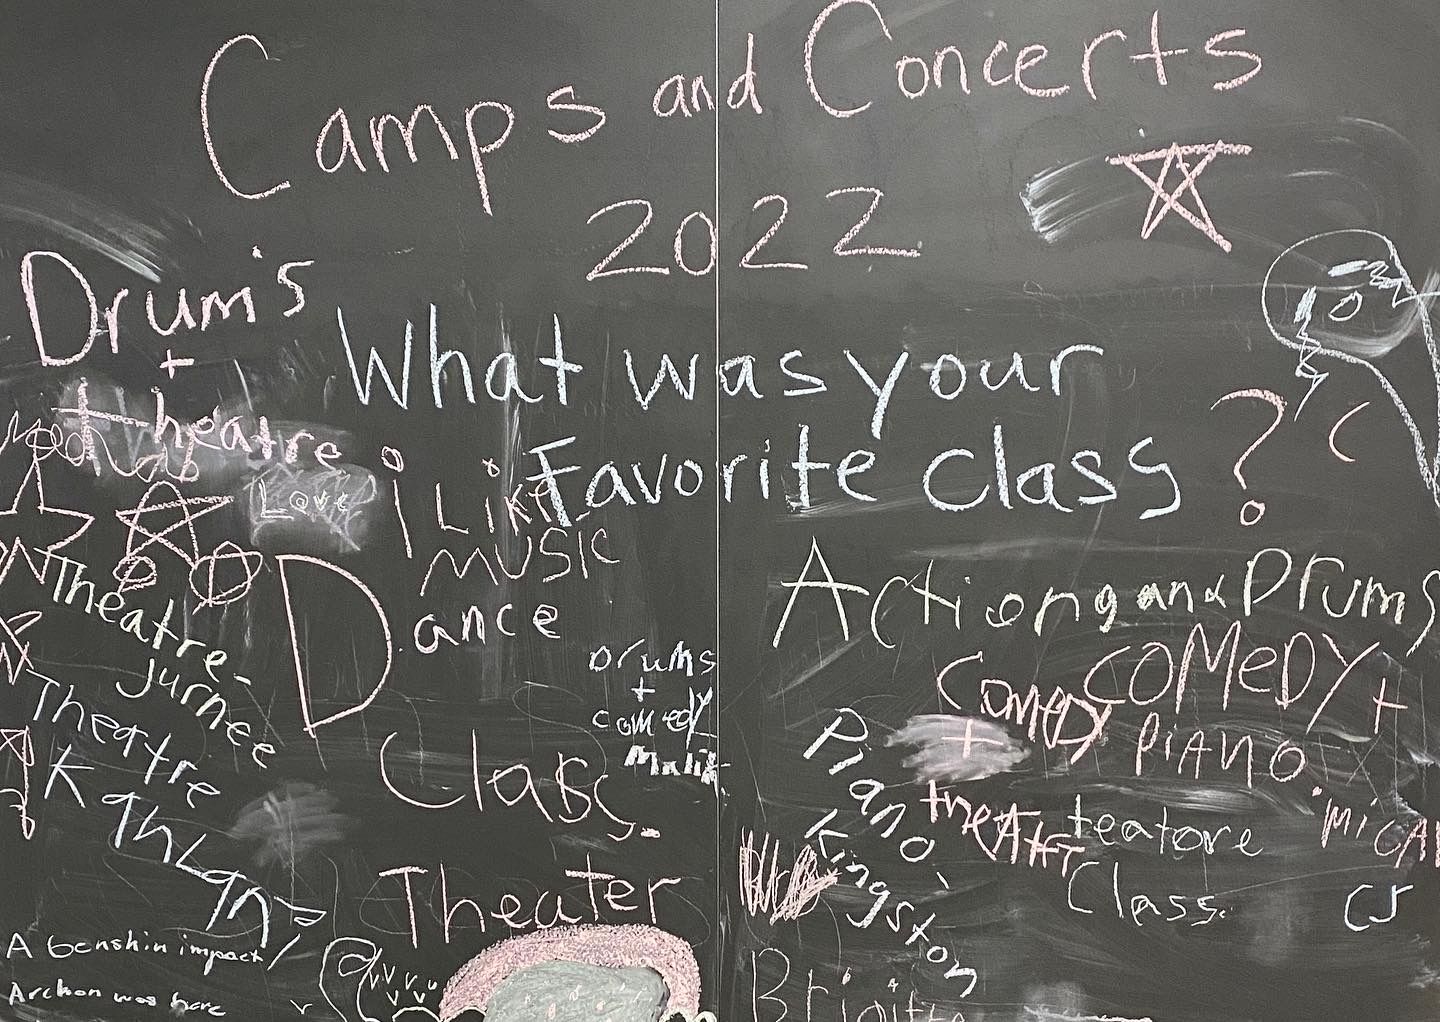 Camps and Concerts
2022
What was your
Favorite class?
Drum's
+
theatre
Love
i Like
MUSIC
Dance
Class.
Theatre-
Jurnee
Theatre
Drums
+
comedy
Malik
Theater
A Genshin impact
Archon was here
Actiong and Drums
COMEDY +
PiANO
Comedy
+
Piano-
Kingston
teatore
Class.
CJ